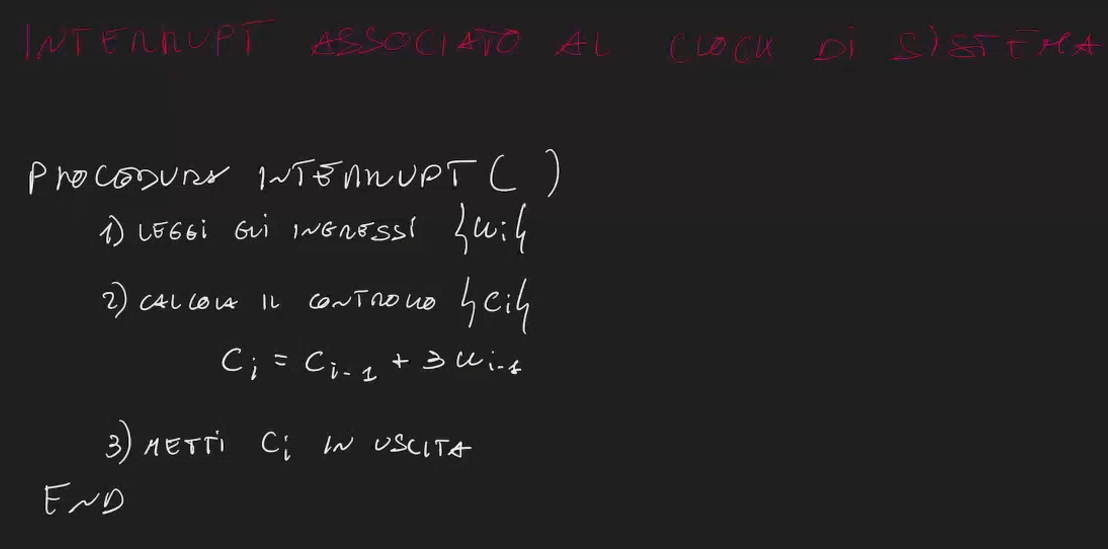 INTERRUPT ASSOCIATO AL CLOCK DI SISTEMA
PROCEDURA INTERRUPT ( )
1) LEGGI GLI INGRESSI {ui}
2) CALCOLA IL CONTROLLO {ci}
Ci = Ci-1 + 3 ui-1
3) METTI Ci IN USCITA
END